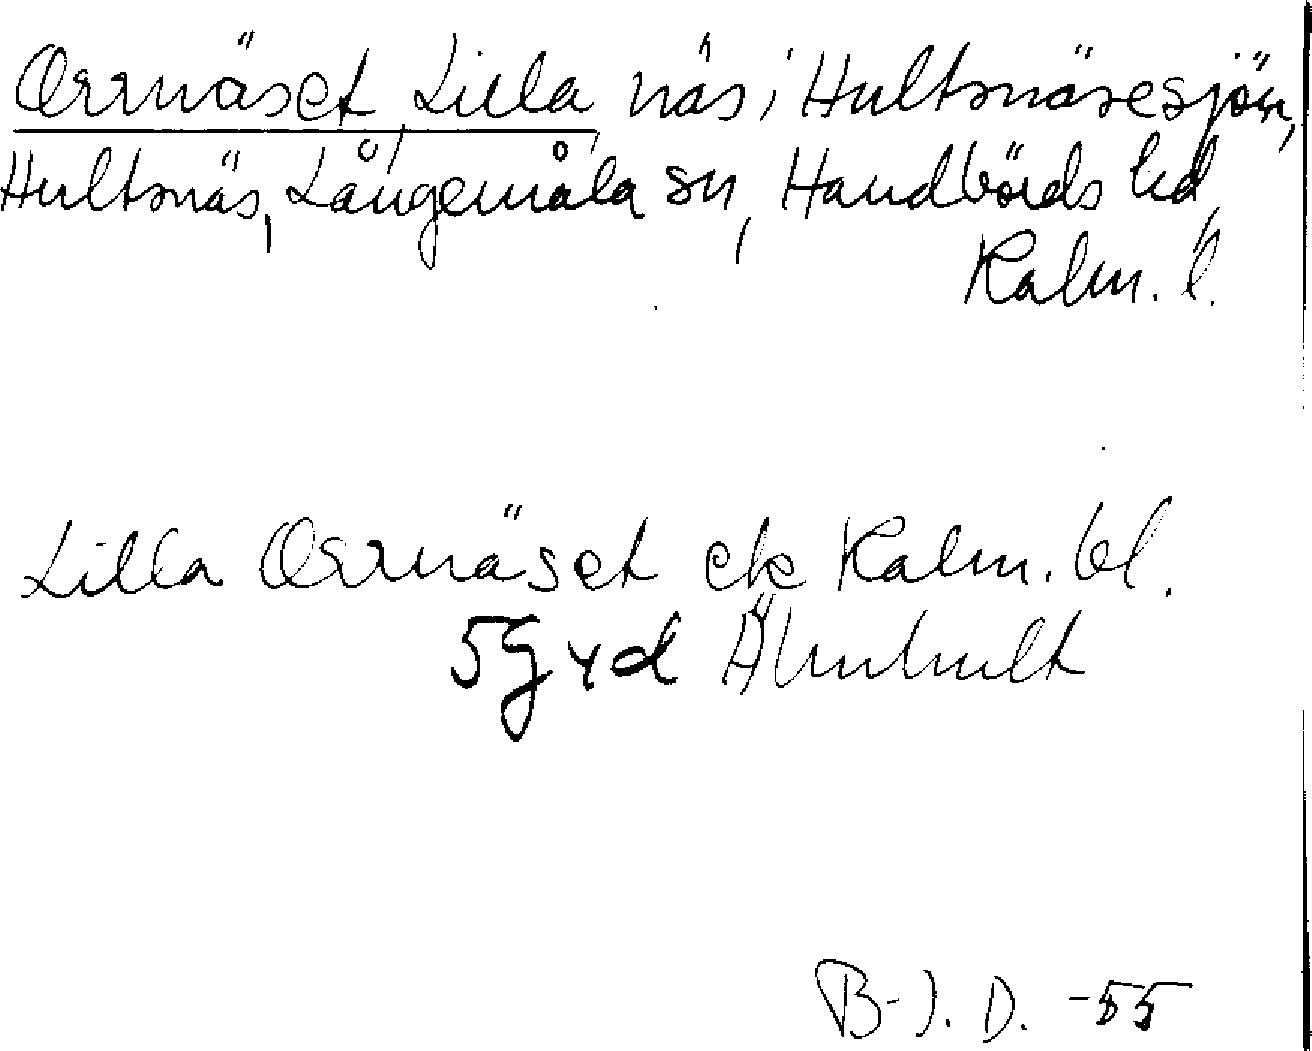 Orrnäset, Lilla, näs i Hultsnäsesjön,
Hultsnäs, Långemåla sn, Handbörds hd,
Kalm. l.
Lilla Orrnäset ek Kalm. bl.
5G yd Älmhult
B-J. D. -55